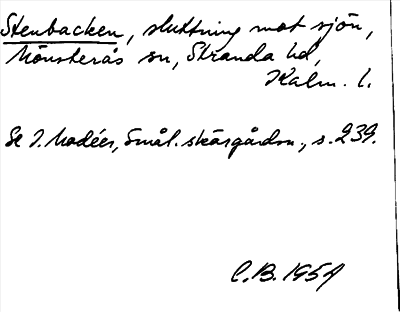 Stenbacken, sluttning mot sjön,
Mönsterås sn, Stranda hd,
Kalm. l.
Se J. Modéer, Smål. skärgårdsn., s. 239.
C.B. 1954